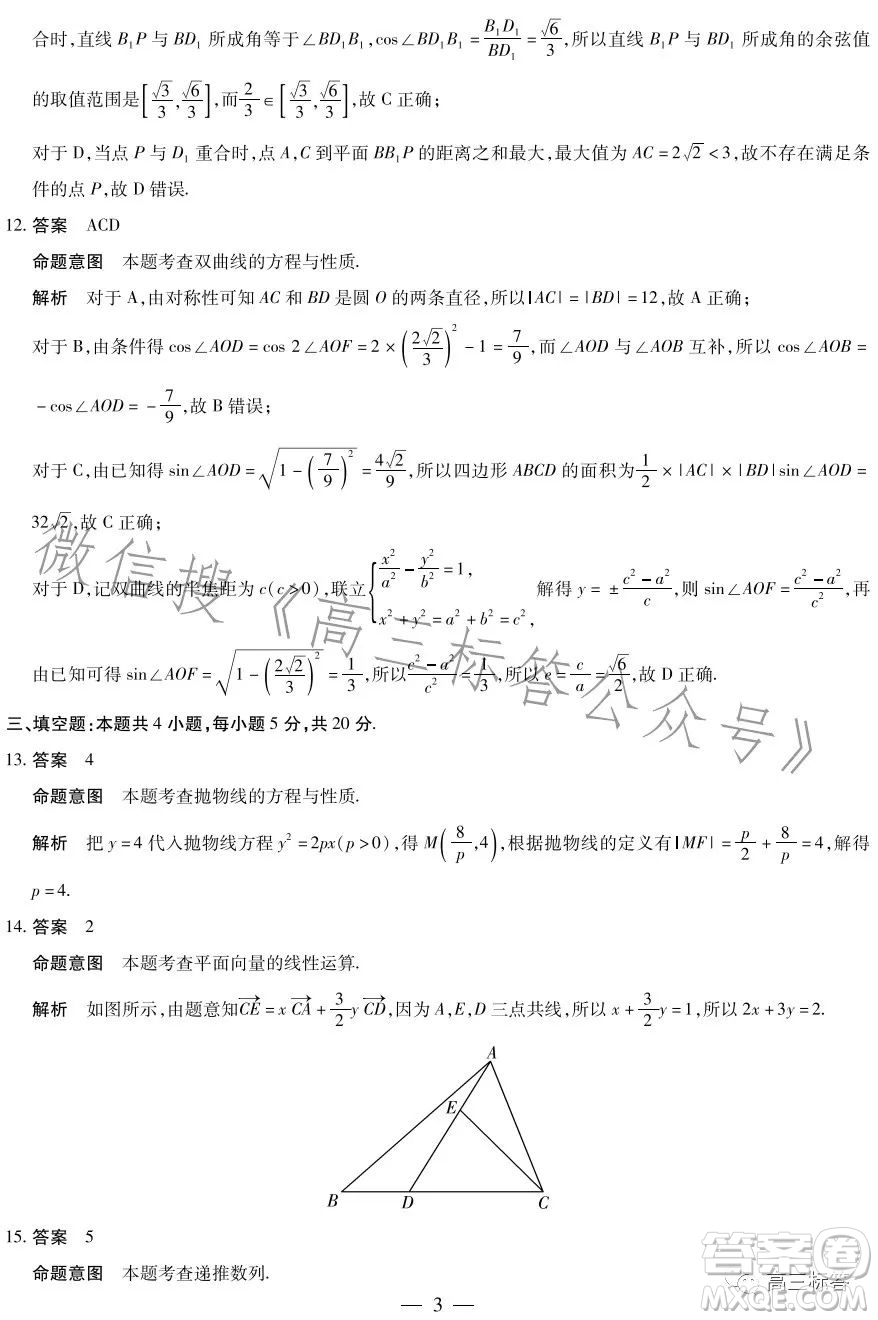 合时,直线 B₁P 与 BD₁ 所成角等于∠BD₁B₁,cos∠BD₁B₁ = B₁D₁/BD₁ = √6/3,所以直线 B₁P 与 BD₁ 所成角的余弦值
的取值范围是[√3/3, √6/3],而 2/3 ∈ [√3/3, √6/3],故 C 正确;
对于 D,当点 P 与 D₁ 重合时,点 A,C 到平面 BB₁P 的距离之和最大,最大值为 AC = 2√2 < 3,故不存在满足条
件的点 P,故 D 错误.
12. 答案 ACD
命题意图 本题考查双曲线的方程与性质.
解析 对于 A,由对称性可知 AC 和 BD 是圆 O 的两条直径,所以|AC| = |BD| = 12,故 A 正确;
对于 B,由条件得 cos∠AOD = cos 2∠AOF = 2 × (2√2/3)² - 1 = 7/9,而∠AOD 与∠AOB 互补,所以 cos∠AOB =
- cos∠AOD = - 7/9,故 B 错误;
对于 C,由已知得 sin∠AOD = √(1 - (7/9)²) = 4√2/9,所以四边形 ABCD 的面积为 1/2 × |AC| × |BD|sin∠AOD =
32√2,故 C 正确;
对于 D,记双曲线的半焦距为 c(c > 0),联立 { x²/a² - y²/b² = 1, x² + y² = a² + b² = c², 解得 y = ± (c² - a²)/c,则 sin∠AOF = (c² - a²)/c²,再
由已知可得 sin∠AOF = √(1 - (2√2/3)²) = 1/3,所以 (c² - a²)/c² = 1/3,所以 e = c/a = √6/2,故 D 正确.
三、填空题:本题共 4 小题,每小题 5 分,共 20 分.
13. 答案 4
命题意图 本题考查抛物线的方程与性质.
解析 把 y = 4 代入抛物线方程 y² = 2px(p > 0),得 M(8/p, 4),根据抛物线的定义有|MF| = p/2 + 8/p = 4,解得
p = 4.
14. 答案 2
命题意图 本题考查平面向量的线性运算.
解析 如图所示,由题意知 CE→ = x CA→ + 3/2 y CD→,因为 A,E,D 三点共线,所以 x + 3/2 y = 1,所以 2x + 3y = 2.
A
E
B D C
15. 答案 5
命题意图 本题考查递推数列.
— 3 —
微信搜《高三标答公众号》
答案卷
高三标答
MXQE.COM